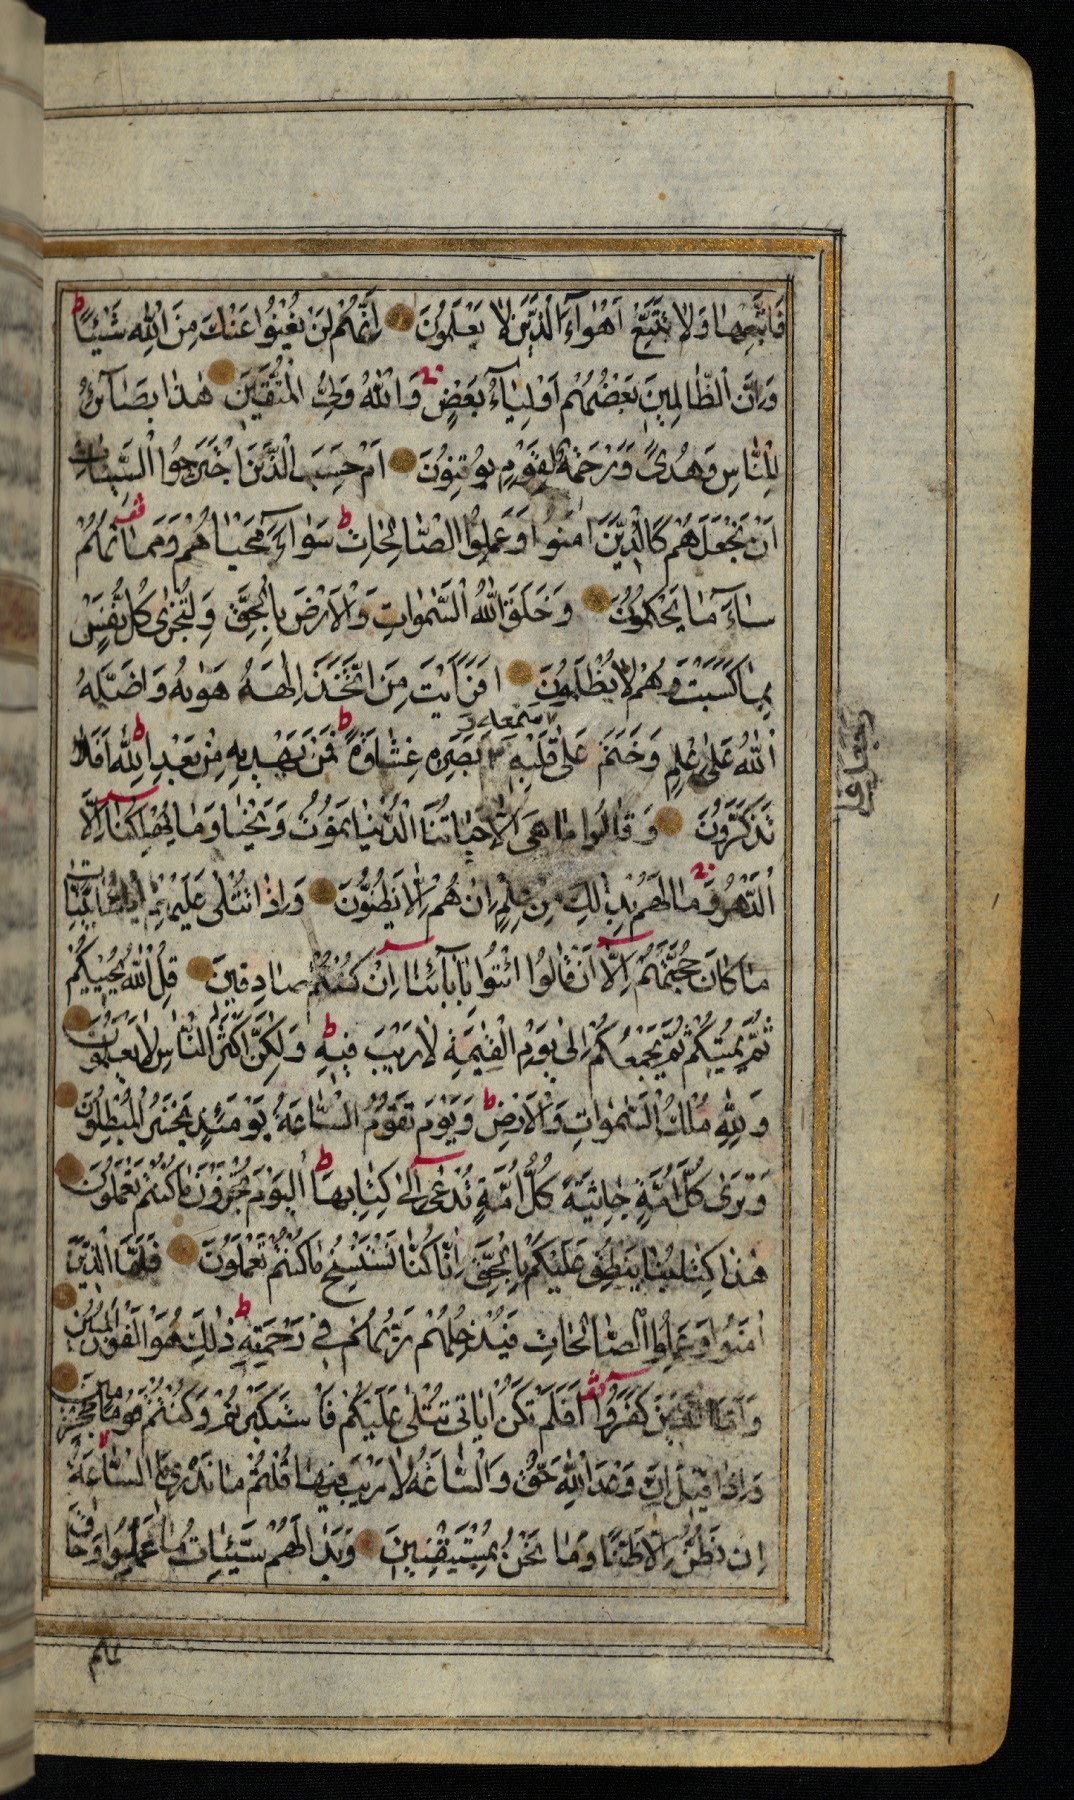 فَاتَّبِعْهَا وَلَا تَتَّبِعْ اَهْوَاءَ الَّذِينَ لَا يَعْلَمُونَ اِنَّهُمْ لَنْ يُغْنُوا عَنْكَ مِنَ اللّٰهِ شَيْئًا ط
وَاِنَّ الظَّالِمِينَ بَعْضُهُمْ اَوْلِيَاءُ بَعْضٍ وَاللّٰهُ وَلِيُّ الْمُتَّقِينَ هٰذَا بَصَائِرُ
لِلنَّاسِ وَهُدًى وَرَحْمَةٌ لِقَوْمٍ يُوقِنُونَ اَمْ حَسِبَ الَّذِينَ اجْتَرَحُوا السَّيِّئَاتِ
اَنْ نَجْعَلَهُمْ كَالَّذِينَ اٰمَنُوا وَعَمِلُوا الصَّالِحَاتِ ط سَوَاءً مَحْيَاهُمْ وَمَمَاتُهُمْ
سَاءَ مَا يَحْكُمُونَ وَخَلَقَ اللّٰهُ السَّمٰوَاتِ وَالْاَرْضَ بِالْحَقِّ وَلِتُجْزٰى كُلُّ نَفْسٍ
بِمَا كَسَبَتْ وَهُمْ لَا يُظْلَمُونَ اَفَرَاَيْتَ مَنِ اتَّخَذَ اِلٰهَهُ هَوٰيهُ وَاَضَلَّهُ
اللّٰهُ عَلٰى عِلْمٍ وَخَتَمَ عَلٰى سَمْعِهِ وَ قَلْبِهِ بَصَرِهِ غِشَاوَةً ط فَمَنْ يَهْدِيهِ مِنْ بَعْدِ اللّٰهِ ط اَفَلَا
تَذَكَّرُونَ وَقَالُوا مَا هِيَ اِلَّا حَيَاتُنَا الدُّنْيَا نَمُوتُ وَنَحْيَا وَمَا يُهْلِكُنَا اِلَّا
الدَّهْرُ وَمَا لَهُمْ بِذٰلِكَ مِنْ عِلْمٍ اِنْ هُمْ اِلَّا يَظُنُّونَ وَاِذَا تُتْلٰى عَلَيْهِمْ اٰيَاتُنَا بَيِّنَاتٍ
مَا كَانَ حُجَّتَهُمْ اِلَّا اَنْ قَالُوا ائْتُوا بِاٰبَائِنَا اِنْ كُنْتُمْ صَادِقِينَ قُلِ اللّٰهُ يُحْيِيكُمْ
ثُمَّ يُمِيتُكُمْ ثُمَّ يَجْمَعُكُمْ اِلٰى يَوْمِ الْقِيٰمَةِ لَا رَيْبَ فِيهِ ط وَلٰكِنَّ اَكْثَرَ النَّاسِ لَا يَعْلَمُونَ
وَلِلّٰهِ مُلْكُ السَّمٰوَاتِ وَالْاَرْضِ ط وَيَوْمَ تَقُومُ السَّاعَةُ يَوْمَئِذٍ يَخْسَرُ الْمُبْطِلُونَ
وَتَرٰى كُلَّ اُمَّةٍ جَاثِيَةً كُلُّ اُمَّةٍ تُدْعٰى اِلٰى كِتَابِهَا ط اَلْيَوْمَ تُجْزَوْنَ مَا كُنْتُمْ تَعْمَلُونَ
هٰذَا كِتَابُنَا يَنْطِقُ عَلَيْكُمْ بِالْحَقِّ اِنَّا كُنَّا نَسْتَنْسِخُ مَا كُنْتُمْ تَعْمَلُونَ فَاَمَّا الَّذِينَ
اٰمَنُوا وَعَمِلُوا الصَّالِحَاتِ فَيُدْخِلُهُمْ رَبُّهُمْ فِي رَحْمَتِهِ ط ذٰلِكَ هُوَ الْفَوْزُ الْمُبِينُ
وَاَمَّا الَّذِينَ كَفَرُوا اَفَلَمْ تَكُنْ اٰيَاتِي تُتْلٰى عَلَيْكُمْ فَاسْتَكْبَرْتُمْ وَكُنْتُمْ قَوْمًا مُجْرِمِينَ
وَاِذَا قِيلَ اِنَّ وَعْدَ اللّٰهِ حَقٌّ وَالسَّاعَةُ لَا رَيْبَ فِيهَا قُلْتُمْ مَا نَدْرِي مَا السَّاعَةُ
اِنْ نَظُنُّ اِلَّا ظَنًّا وَمَا نَحْنُ بِمُسْتَيْقِنِينَ وَبَدَا لَهُمْ سَيِّئَاتُ مَا عَمِلُوا وَحَاقَ